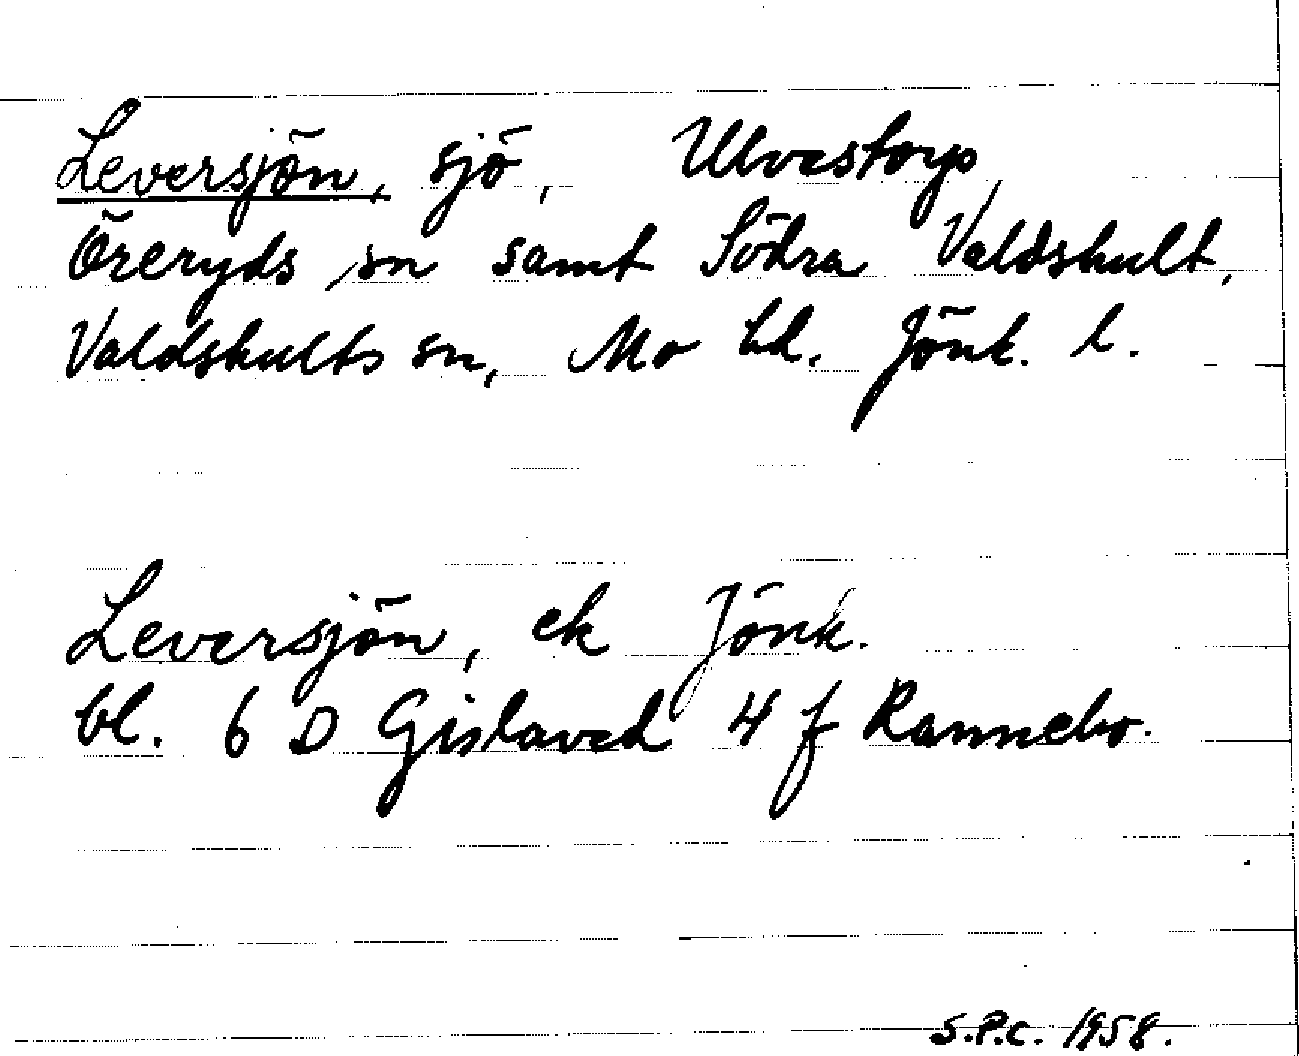 Leversjön, sjö, Ulvestorp,
Öreryds sn samt Södra Valdshult,
Valdshults sn, Mo hd. Jönk. l.
Leversjön, ek Jönk.
bl. 6 D Gislaved 4 f Rannebo.
S.P.C. 1958.